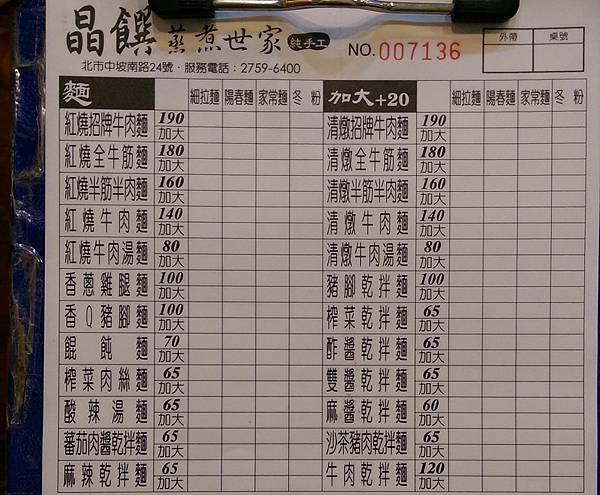 晶饌蒸煮世家 純手工 NO.007136 外帶 桌號
北市中坡南路24號·服務電話:2759-6400
麵 細拉麵 陽春麵 家常麵 冬粉 加大+20 細拉麵 陽春麵 家常麵 冬粉
紅燒招牌牛肉麵 190 加大 清燉招牌牛肉麵 190 加大
紅燒全牛筋麵 180 加大 清燉全牛筋麵 180 加大
紅燒半筋半肉麵 160 加大 清燉半筋半肉麵 160 加大
紅燒牛肉麵 140 加大 清燉牛肉麵 140 加大
紅燒牛肉湯麵 80 加大 清燉牛肉湯麵 80 加大
香蔥雞腿麵 100 加大 豬腳乾拌麵 100 加大
香Q豬腳麵 100 加大 榨菜乾拌麵 65 加大
餛飩麵 70 加大 酢醬乾拌麵 65 加大
榨菜肉絲麵 65 加大 雙醬乾拌麵 65 加大
酸辣湯麵 65 加大 麻醬乾拌麵 60 加大
蕃茄肉醬乾拌麵 65 加大 沙茶豬肉乾拌麵 65 加大
麻辣乾拌麵 65 加大 牛肉乾拌麵 120 加大